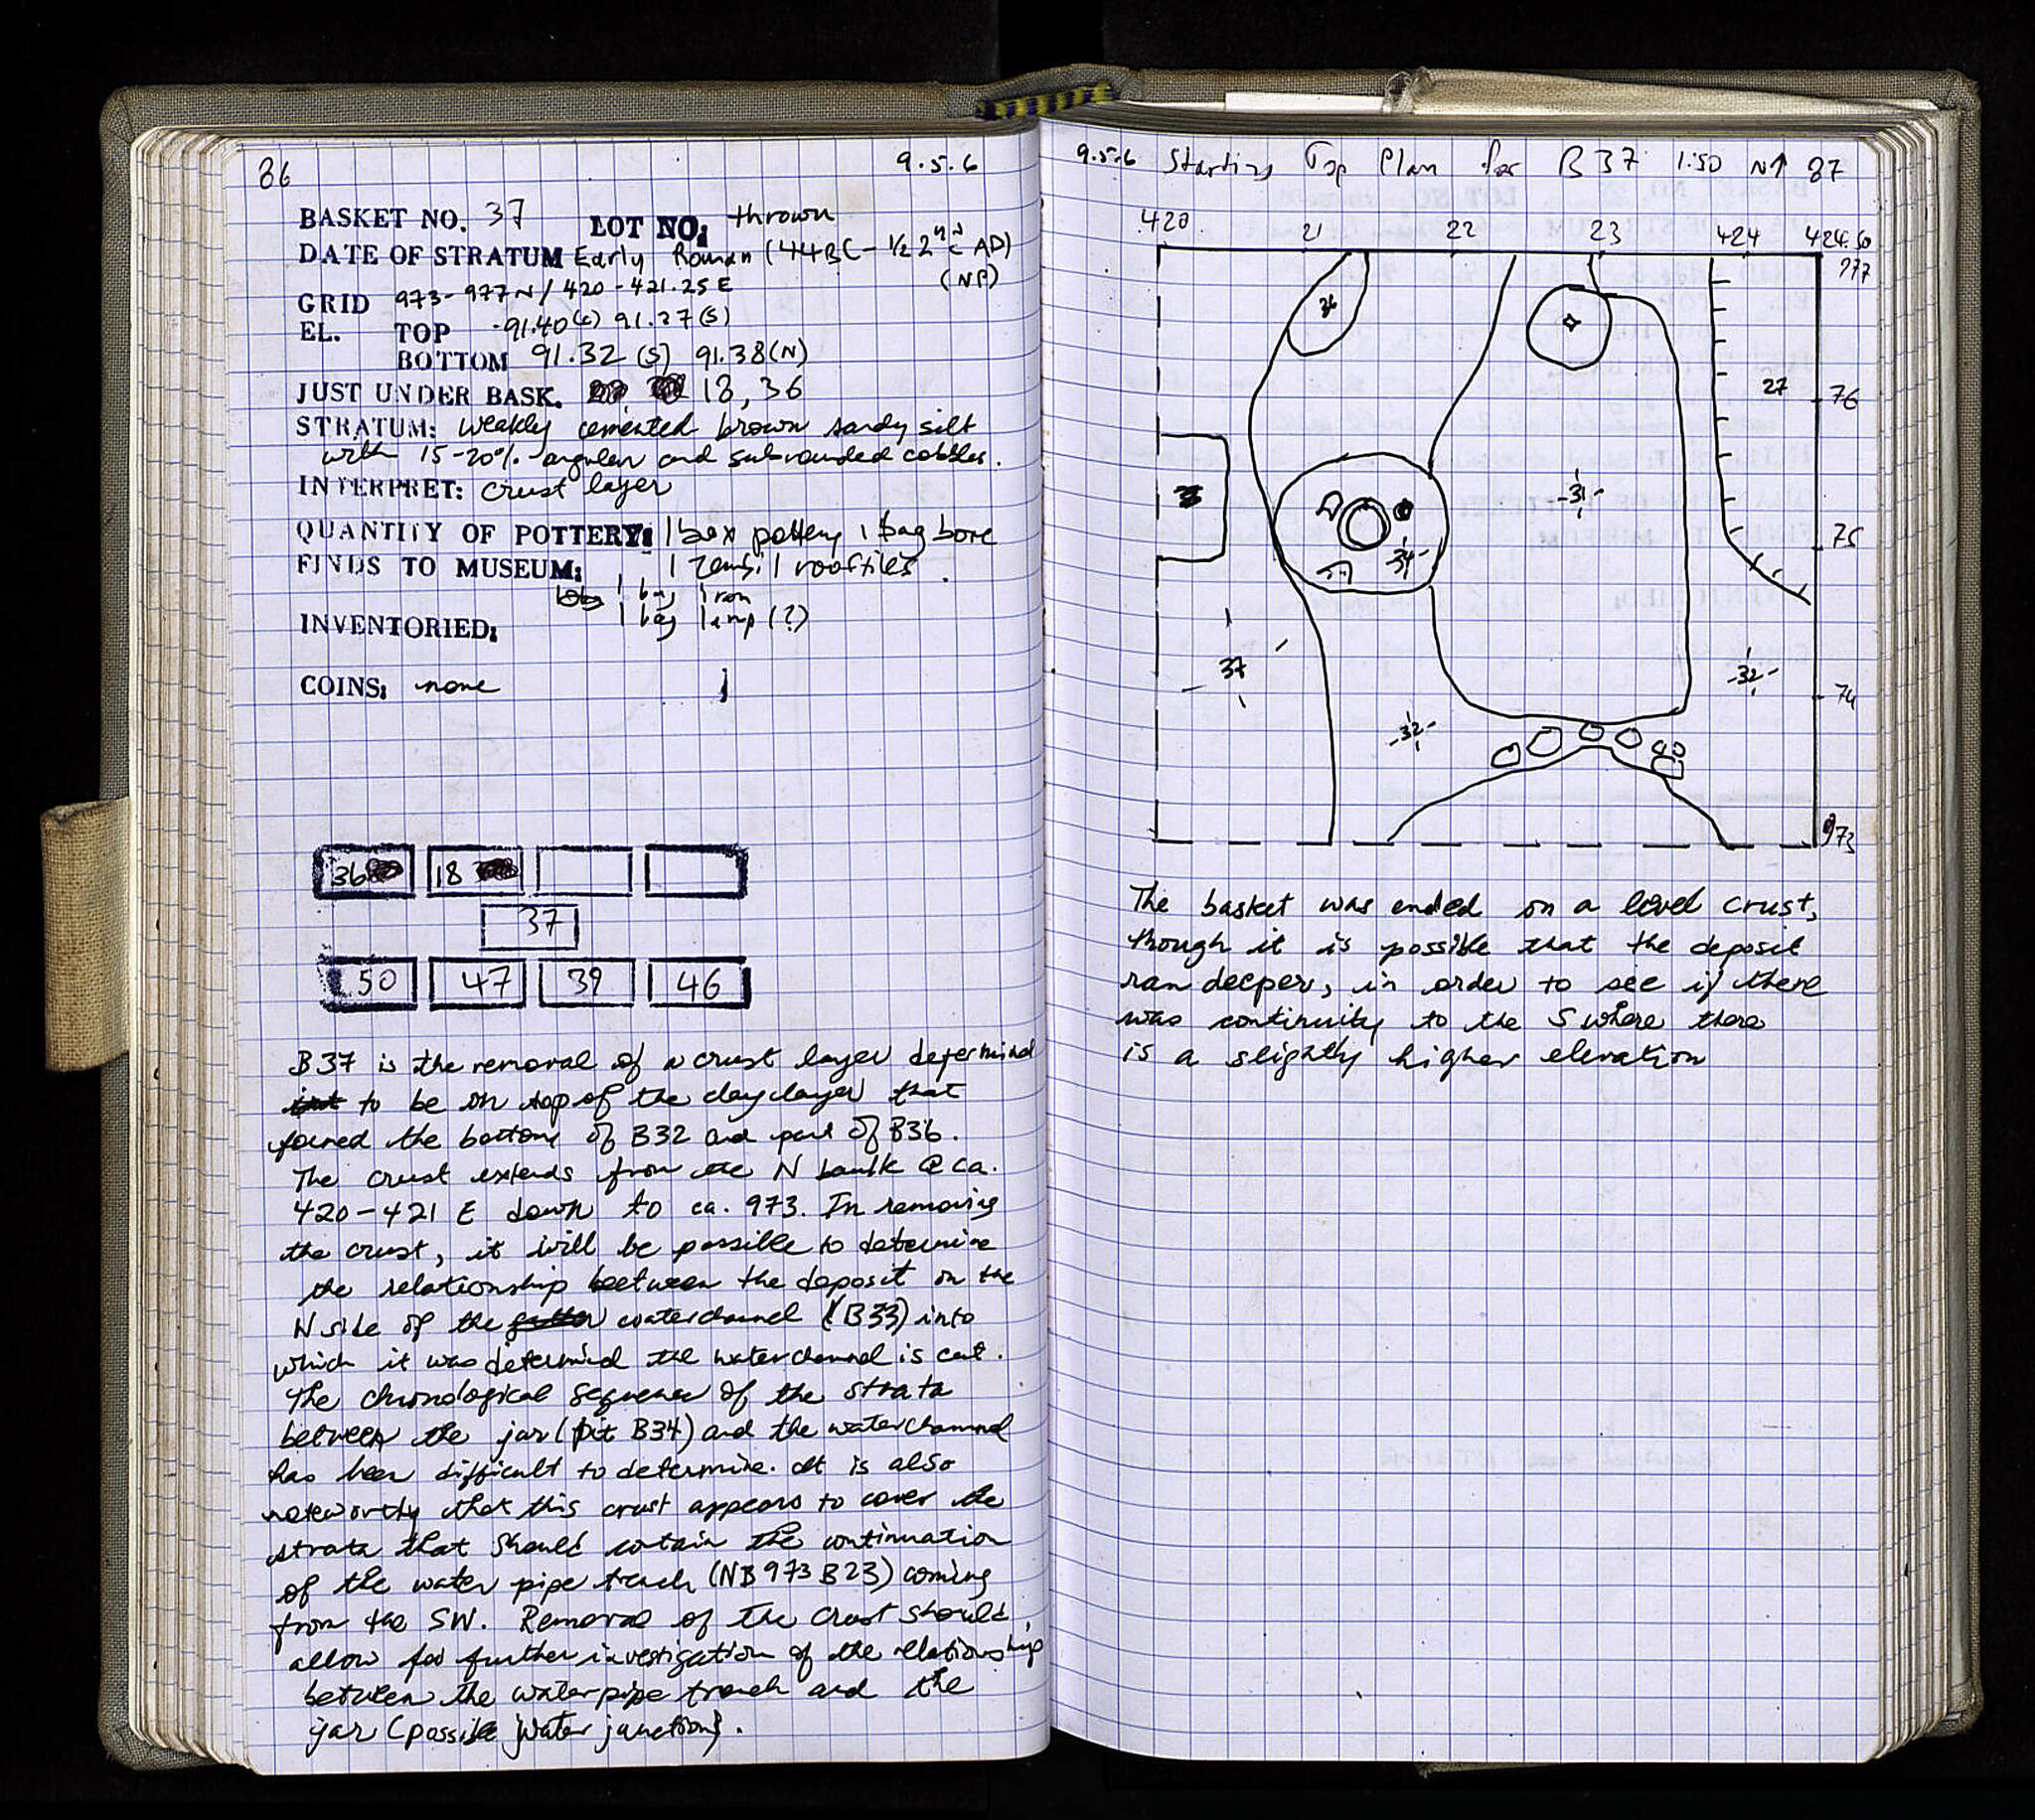 86
9.5.6
BASKET NO. 37 LOT NO: thrown
DATE OF STRATUM Early Roman (44BC - 1/2 2nd c AD)
(NP)
GRID 973-977N/420-421.25E
EL. TOP 91.40 91.27(S)
BOTTOM 91.32 (S) 91.38(N)
JUST UNDER BASK. 18, 36
STRATUM: weakly cemented brown sandy silt
with 15-20% angular and subrounded cobbles.
INTERPRET: crust layer
QUANTITY OF POTTERY: 1 box pottery, 1 bag bone
FINDS TO MUSEUM: 1 rooftiles
1 bag iron
1 bag lamp (?)
INVENTORIED:
COINS: none
36 18
37
50 47 39 46
B37 is the removal of a crust layer determined
to be on top of the clay layer that
formed the bottom of B32 and part of B36.
The crust extends from the N baulk @ ca.
420-421 E down to ca. 973. In removing
the crust, it will be possible to determine
the relationship between the deposit on the
N side of the gutter waterchannel (B33) into
which it was determined the waterchannel is cut.
The chronological sequence of the strata
between the jar (pit B34) and the waterchannel
has been difficult to determine. It is also
noteworthy that this crust appears to cover the
strata that should contain the continuation
of the water pipe trench (NB 973 B23) coming
from the SW. Removal of the crust should
allow for further investigation of the relationship
between the waterpipe trench and the
jar (possible water junction).
9.5.6 Starting Top Plan for B37 1:50 N↑ 87
420 21 22 23 424 424.50
977
36
27
76
31
75
34
37
32
74
32
973
The basket was ended on a level crust,
though it is possible that the deposit
ran deeper, in order to see if there
was continuity to the S where there
is a slightly higher elevation